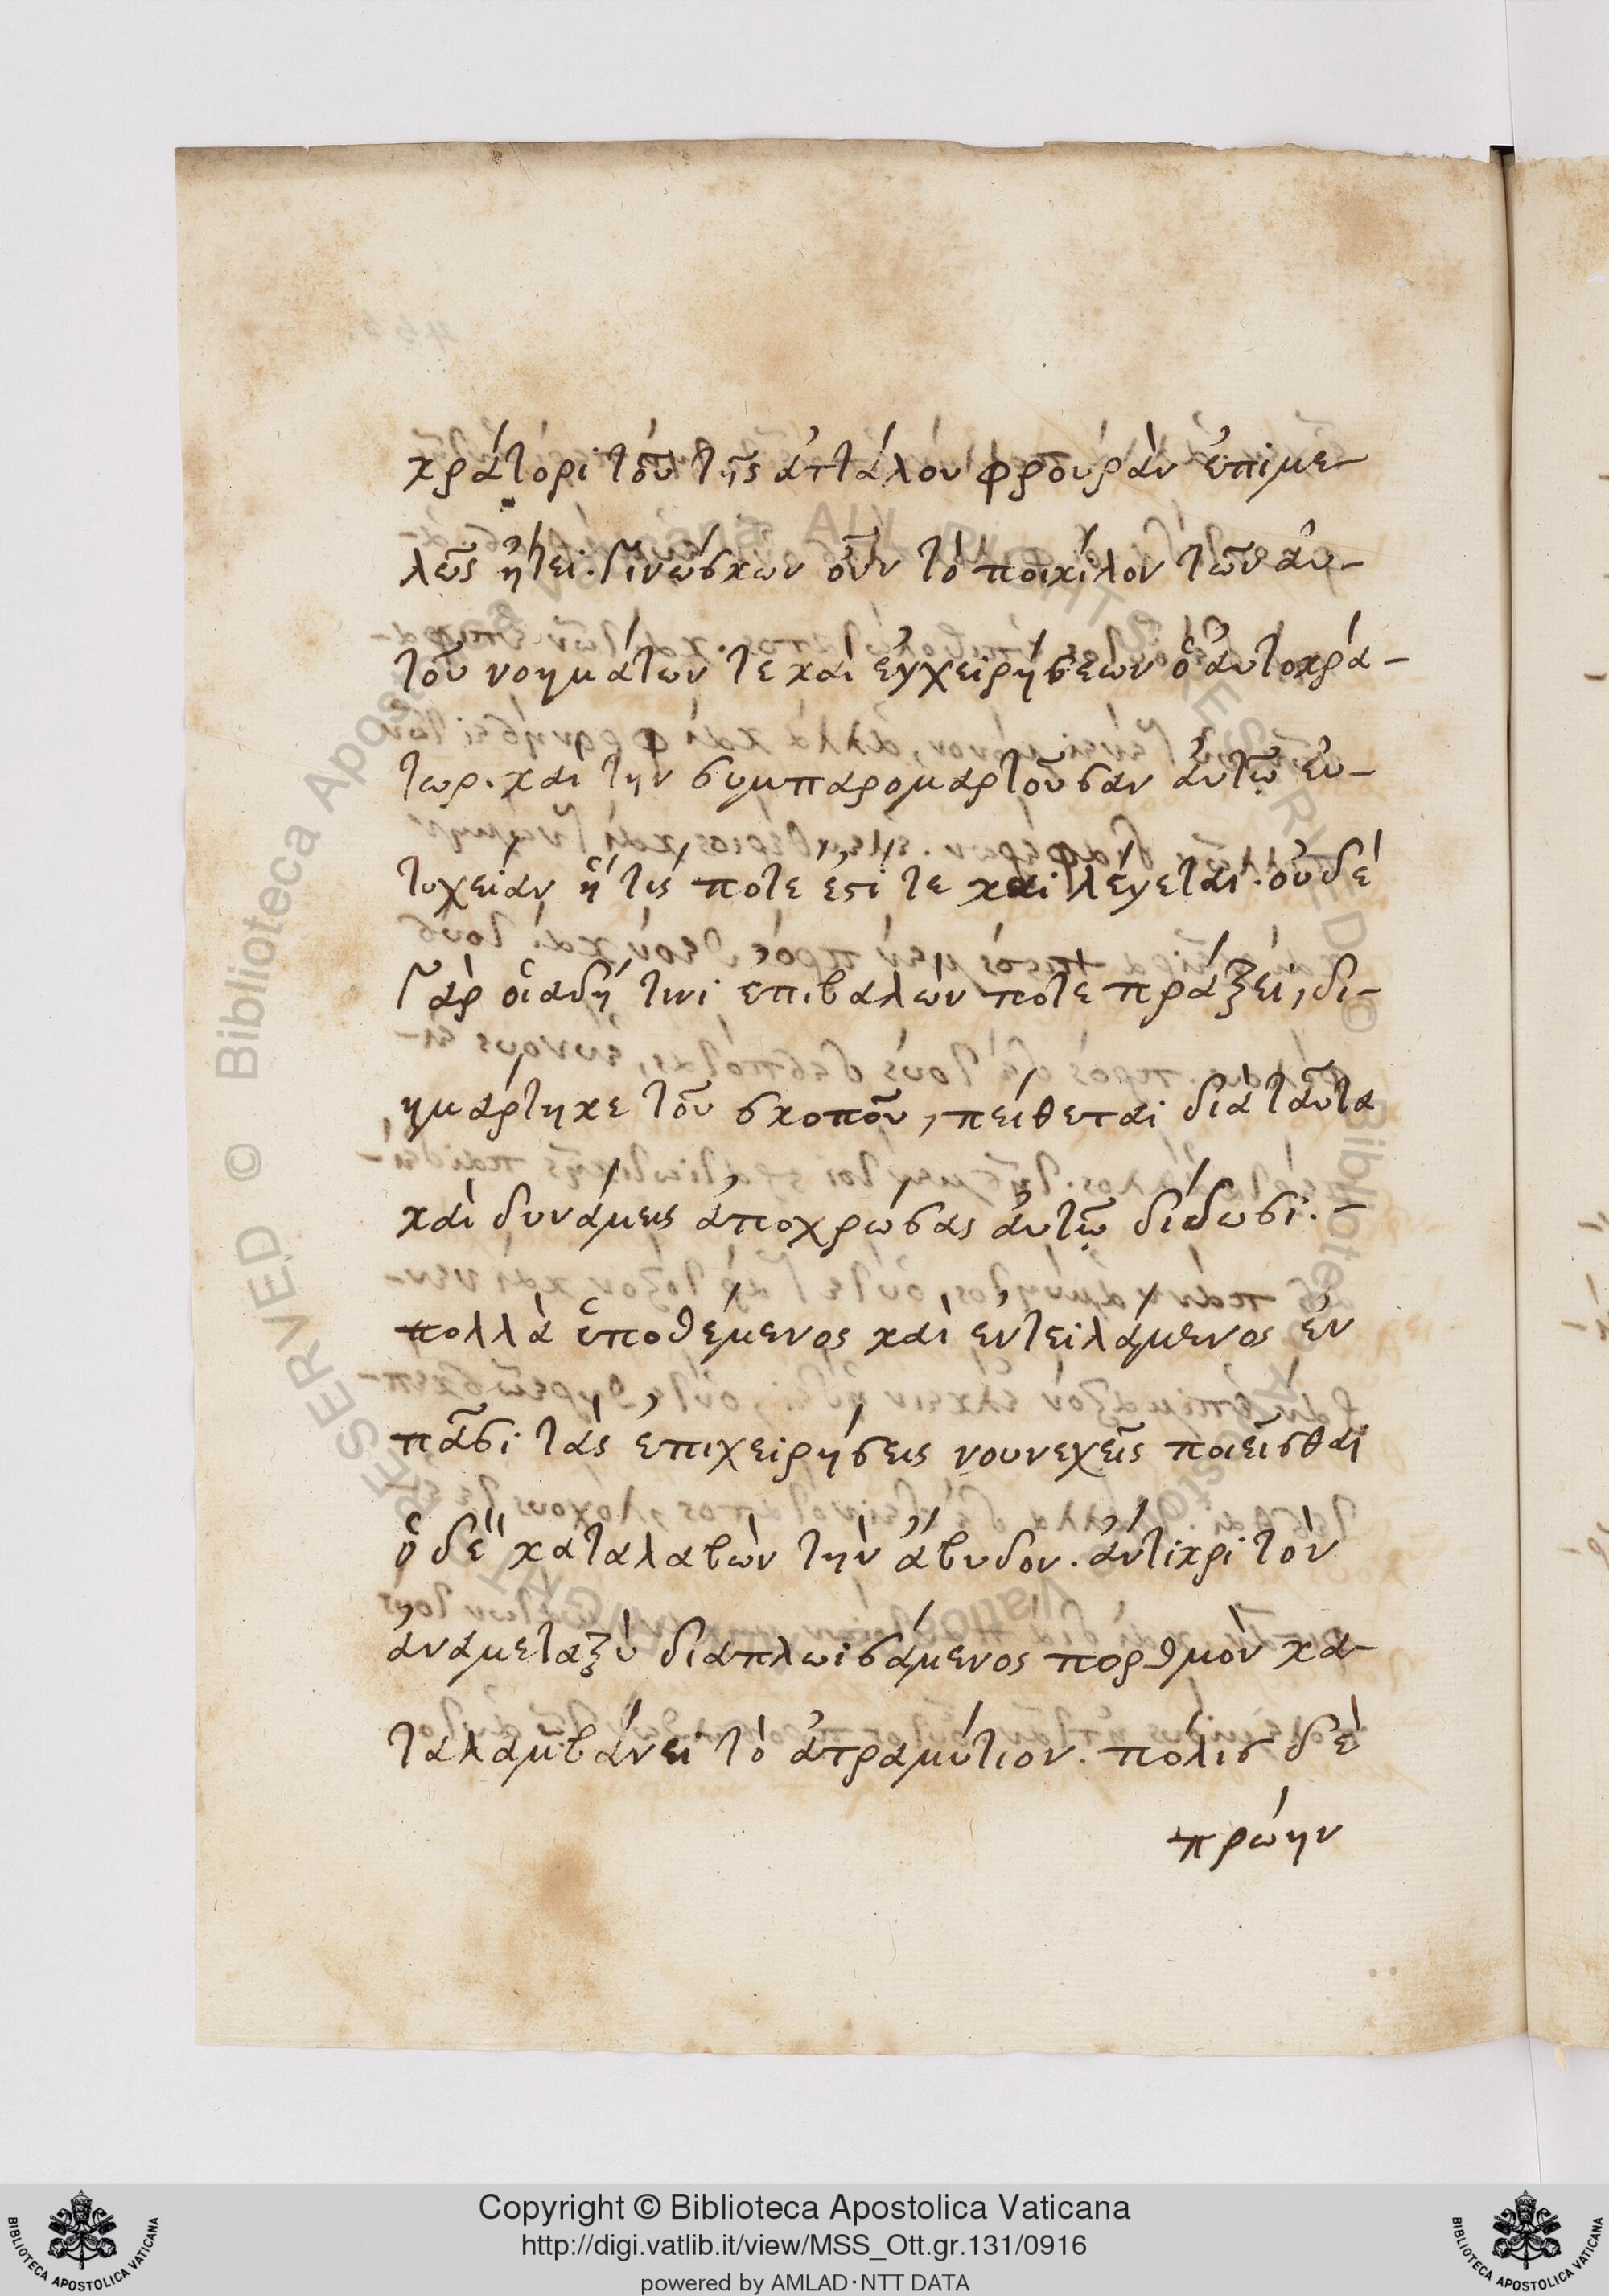 κράτορι τοῦ τῆς ἀτταλου φρουρὰν ἐπιμε-
λῶς ᾔτει. Γινώσκων οὖν τὸ ποικίλον τῶν αὐ-
τοῦ νοημάτων τε καὶ ἐγχειρήσεων ὁ αὐτοκρά-
τωρ. καὶ τὴν συμπαρομαρτοῦσαν αὐτῷ εὐ-
τυχείαν ἥ τις ποτε ἐστί τε καὶ λέγεται. οὐδὲ
Γὰρ οἱαδή τινι ἐπιβαλων ποτε πράξει, δι-
ημάρτηκε τοῦ σκοποῦ, πείθεται διὰ ταῦτα
καὶ δυνάμεις ἀποχρώσας αὐτῷ δίδωσι. -
πολλὰ ὑποθέμενος καὶ ἐντειλάμενος ἐν
πᾶσι τὰς ἐπιχειρήσεις νουνεχεῖς ποιεῖσθαι
ὁ δὲ καταλαβὼν τὴν ἄβυδον. ἀντίκρι τὸν
ἀναμεταξὺ διαπλωισάμενος πορθμὸν κα-
ταλαμβάνει τὸ ἀτραμύτιον. πόλις δὲ
πρώην
Copyright © Biblioteca Apostolica Vaticana
http://digi.vatlib.it/view/MSS_Ott.gr.131/0916
powered by AMLAD·NTT DATA
BIBLIOTECA APOSTOLICA VATICANA
BIBLIOTECA APOSTOLICA VATICANA